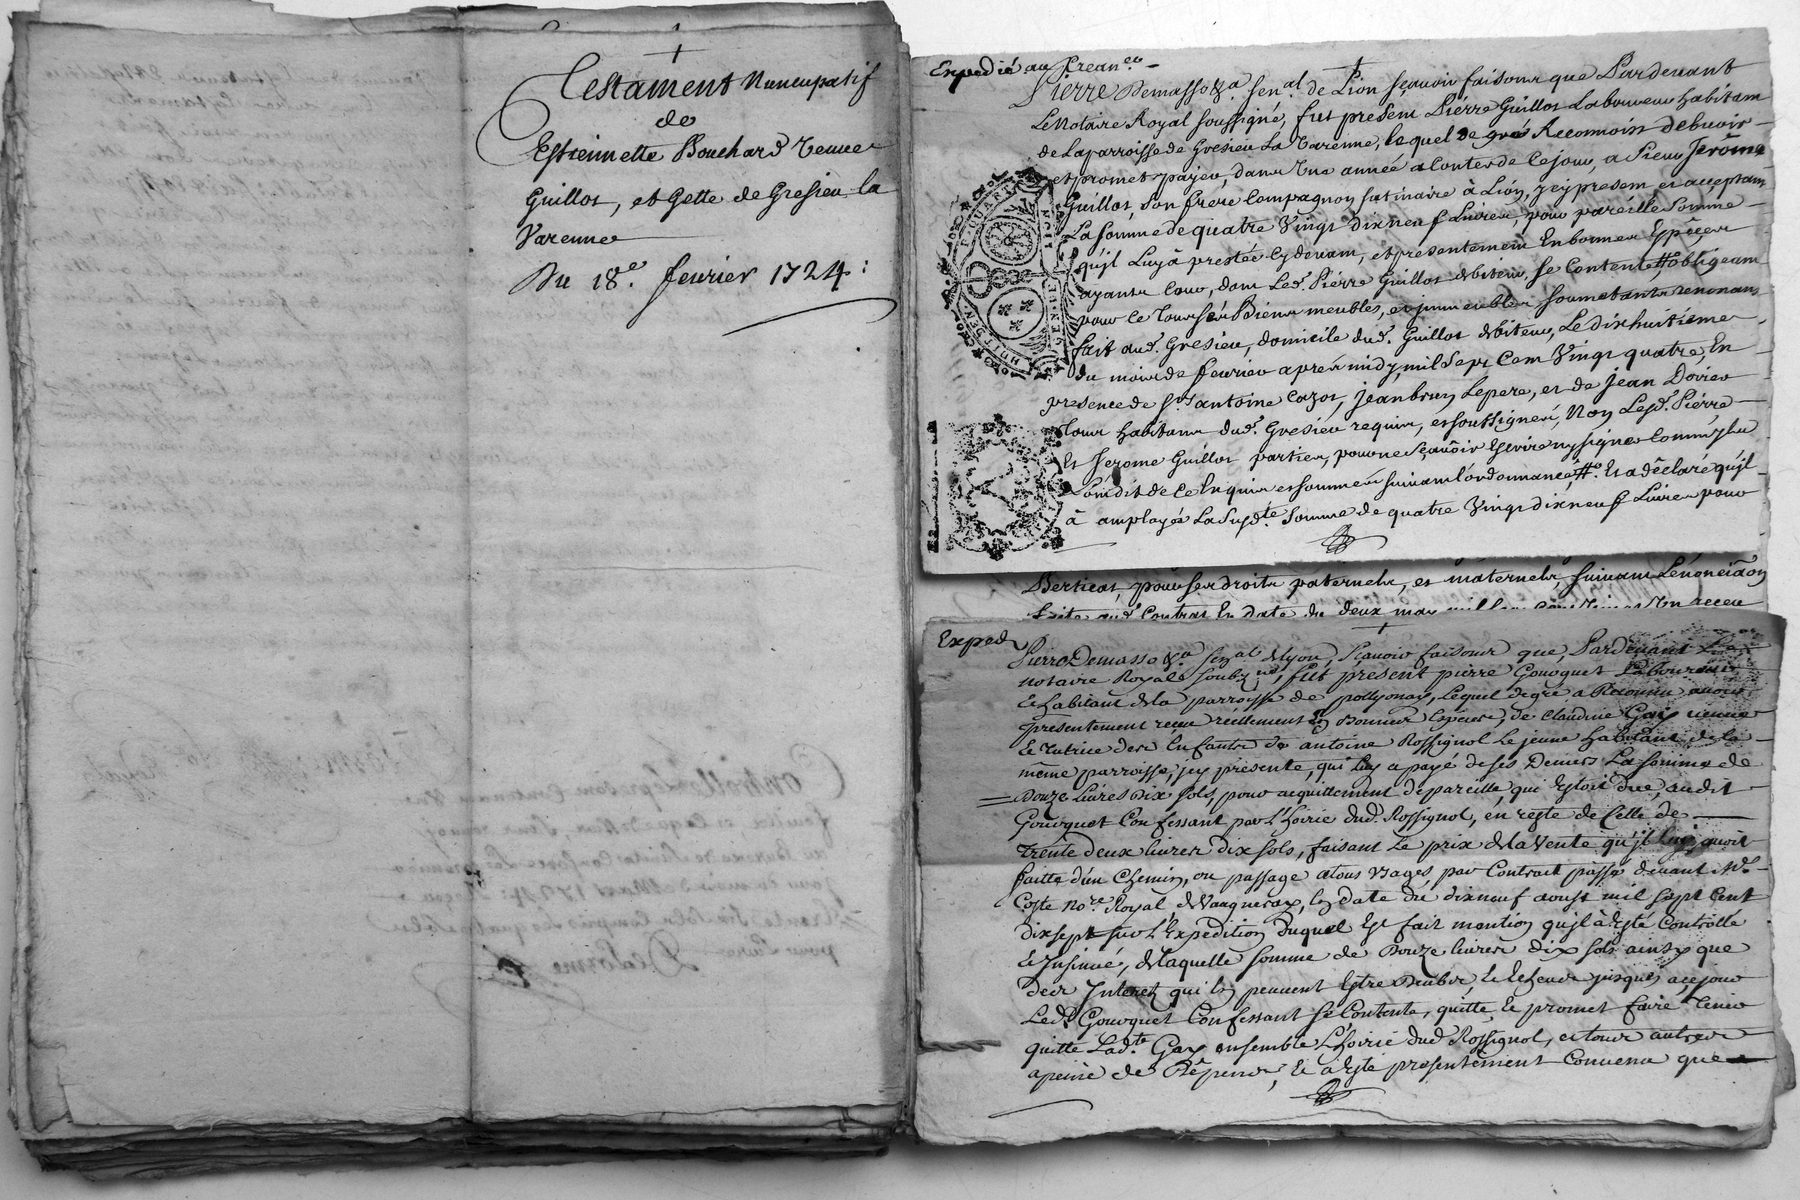 Testament Nuncupatif
de
Estiennette Bouchard veuve
Guillot, et Gette de Gresieu la
Varenne
Du 18e. feurier 1724:
Expedié au Crean.er
Pierre Demasso &a Sen.al de Lion sçauoir faisons que Pardeuant
Le Notaire Royal soussigné, fut présent Pierre Guillot Laboureur habitant
de La parroisse de Gresieu La Varenne, lequel de gré a Reconnoist debuoir
et promet payer, dans Une année a Conter de Ce jour, a Sieur Jerôme
Guillot, Son frere Compagnon satinaire à Lion, jcy present et acceptant
La Somme de quatre Vingt dixneuf Liures, pour pareille Somme
qu'jl Luy à prestée cy deuant, et presentement En bonnes Espèces
ayants Cour, dont Led. Pierre Guillot debiteur, se Contente # obligeant
pour Ce Tous ses Biens meubles, et jmmeubles soumetants renonants
fait aud. Gresieu, domicile dud. Guillot debiteur, Le dixhuitieme
du mois de feurier apres midy, mil Sept Cent Vingt quatre, En
presence de Srs antoine Cazot, jean brun Lepere, et de jean Dorier
Tous habitans dud. Gresieu requis, et soussignéz, Non Lesd. Pierre
Et Jerome Guillot parties, pour ne sçauoir Escrire ny signer Comm'jls
L'ont dit de Ce Enquis et sommés suiuant l'ordonnance, # Et a déclaré qu'jl
à employée La Susd.te Somme de quatre Vingt dixneuf Liures pour
F. QUART
HUIT DEN
GEN. DE
LION
Berticat, pour ses droits paternels, et maternels, suiuant L'énonciâon
faite aud. Contrat En date du deux may mil Sept Cent Vingt Un receu
Exped
Pierre Demasso &a Sen.al de Lyon, Sçauoir faisons que, Pardeuant Le
notaire Royal Soubz.né, fut présent pierre Gouoquet Laboureur
Et habitant de la parroisse de pollyonay, Lequel degré a Reconnu auoir
présentement reçeu réellement En Bonnes Espeçes, de Claudine Gay veuue
Et Tutrice des Enfants de antoine Rossignol Le jeune habitant de la
même parroisse, jcy présente, qui Luy a payé de ses Deniers La Somme de
Douze Liures Dix Sols, pour acquittement de pareille, qui Estoit due, audit
Gouoquet Confessant par L'hoirie dud. Rossignol, en reste de Celle de
Trente deux liures dix sols, faisant Le prix de la Vente qu'jl Luy auoit
faitte d'un Chemin, ou passage a tous Vsages par Contract passé deuant Me.
Coste no.re Royal de Vaugneray, En date du dixneuf aoust mil sept Cent
dix sept sur L'Expedition Duquel Est fait mention qu'jl à Esté Controllé
Et Jnsinué, de laquelle somme de Douze liures dix sols ainsy que
des Interetz qui En peuuent Estre Deubz, Et Echeus jusques a ce jour
Led. Gouoquet Confessant Se Contente, quitte Et promet faire Tenir
quitte Lad.te Gay ensemble L'hoirie dud. Rossignol, et tous autres
a peine de Dépens, Et à Esté presentement Conuenu que
Controlle
feurier
Delorme